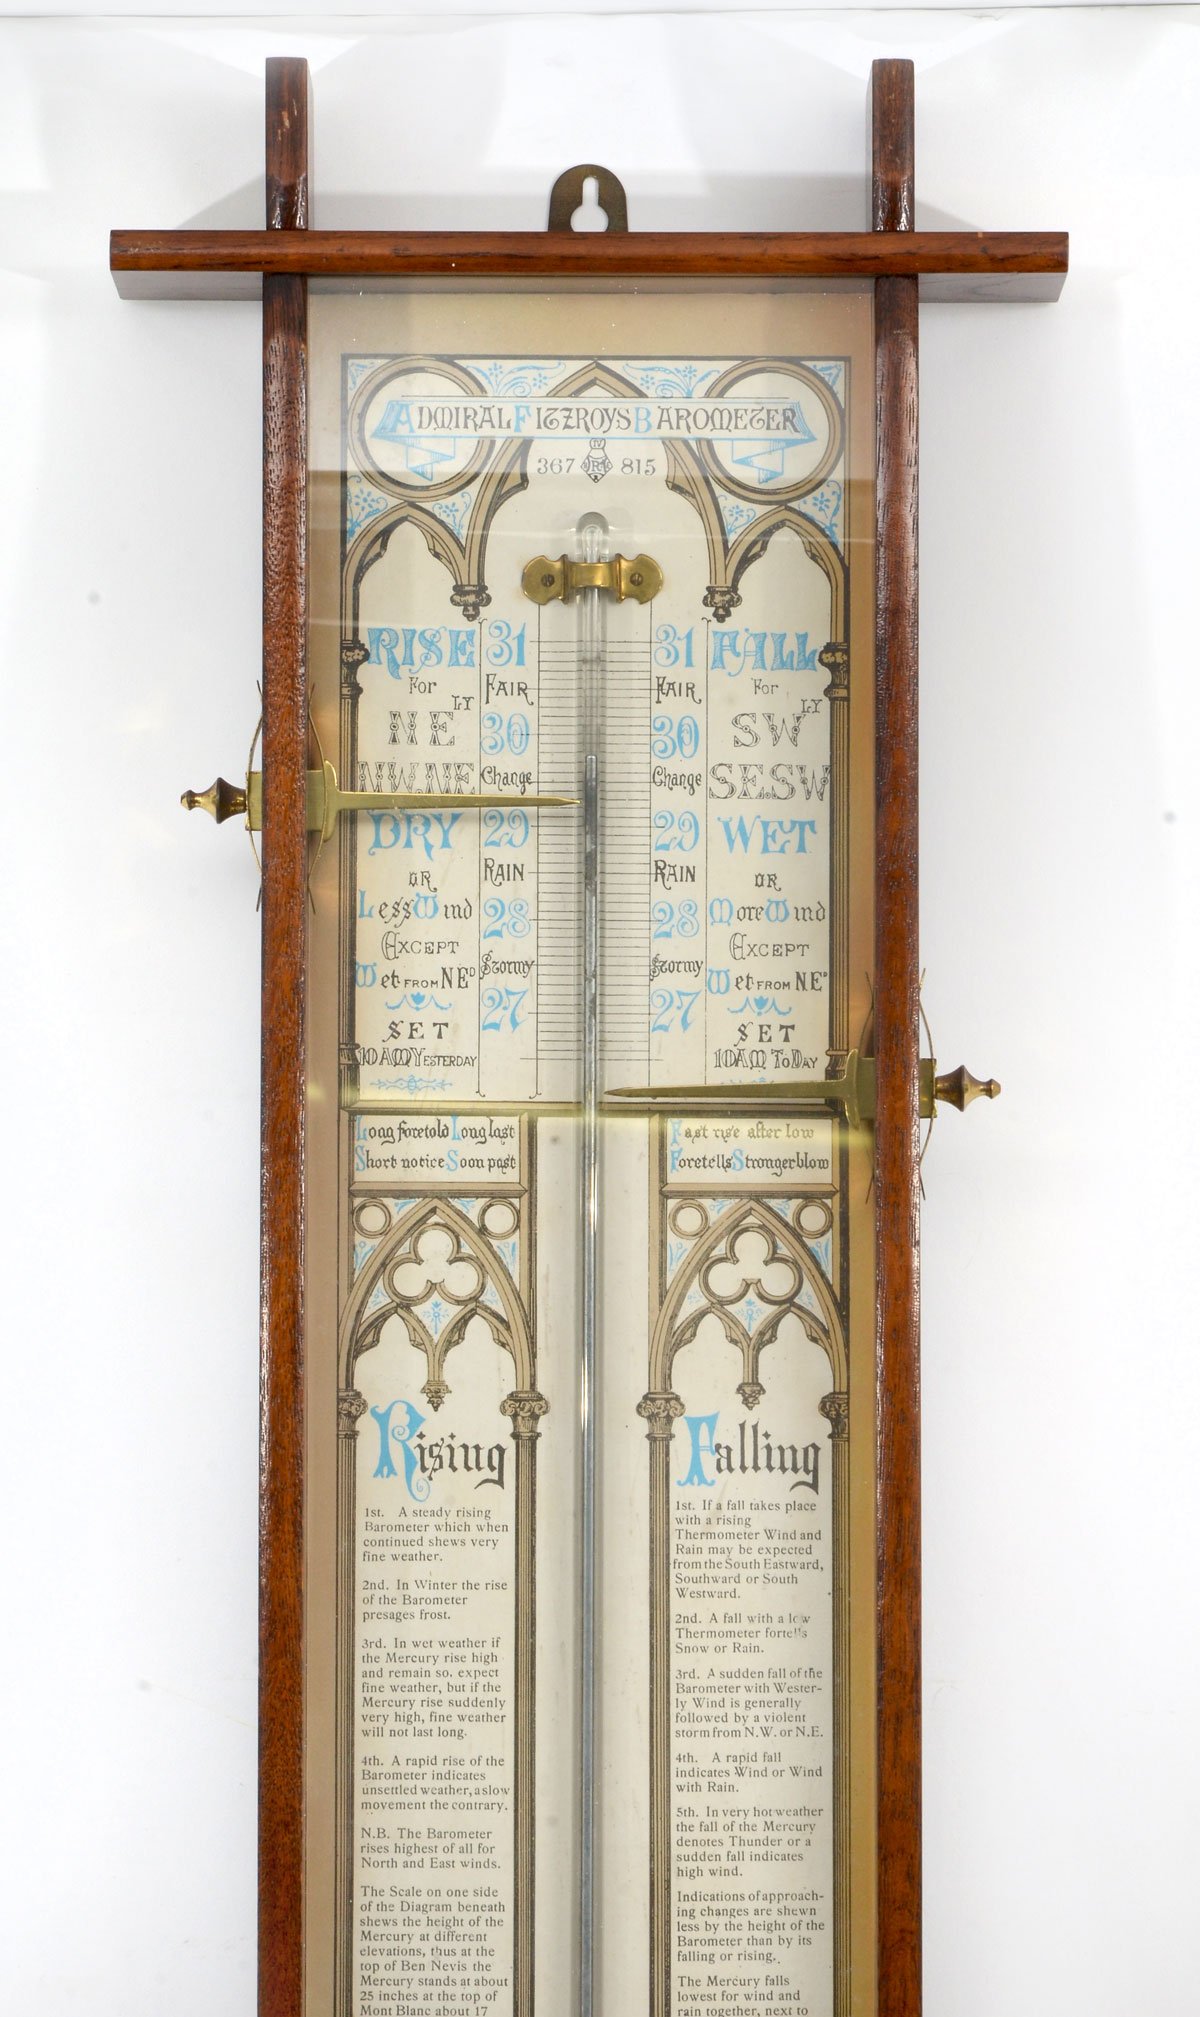 ADMIRAL FITZROYS BAROMETER
367 815
RISE
For
NE LY
NW.NE
DRY
OR
Less Wind
EXCEPT
Wet FROM N.ED
SET
10 AM YESTERDAY
31
FAIR
30
Change
29
RAIN
28
Stormy
27
31
FAIR
30
Change
29
RAIN
28
Stormy
27
FALL
For
SW LY
SE.SW
WET
OR
More Wind
EXCEPT
Wet FROM N.ED
SET
10 AM TO DAY
Long foretold Long last
Short notice Soon past
Fast rise after low
Foretells Stronger blow
Rising
1st. A steady rising
Barometer which when
continued shews very
fine weather.
2nd. In Winter the rise
of the Barometer
presages frost.
3rd. In wet weather if
the Mercury rise high
and remain so. expect
fine weather, but if the
Mercury rise suddenly
very high, fine weather
will not last long.
4th. A rapid rise of the
Barometer indicates
unsettled weather, a slow
movement the contrary.
N.B. The Barometer
rises highest of all for
North and East winds.
The Scale on one side
of the Diagram beneath
shews the height of the
Mercury at different
elevations, thus at the
top of Ben Nevis the
Mercury stands at about
25 inches at the top of
Mont Blanc about 17
Falling
1st. If a fall takes place
with a rising
Thermometer Wind and
Rain may be expected
from the South Eastward,
Southward or South
Westward.
2nd. A fall with a low
Thermometer fortells
Snow or Rain.
3rd. A sudden fall of the
Barometer with Wester-
ly Wind is generally
followed by a violent
storm from N.W. or N.E.
4th. A rapid fall
indicates Wind or Wind
with Rain.
5th. In very hot weather
the fall of the Mercury
denotes Thunder or a
sudden fall indicates
high wind.
Indications of approach-
ing changes are shewn
less by the height of the
Barometer than by its
falling or rising.
The Mercury falls
lowest for wind and
rain together, next to